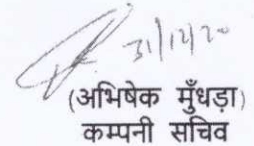 31/12/20
(अभिषेक मुँधड़ा)
कम्पनी सचिव